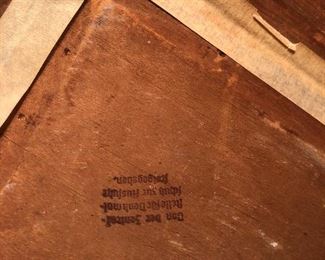 Von der Zentral-
stelle für Denkmal-
schutz zur Ausfuhr
freigegeben.